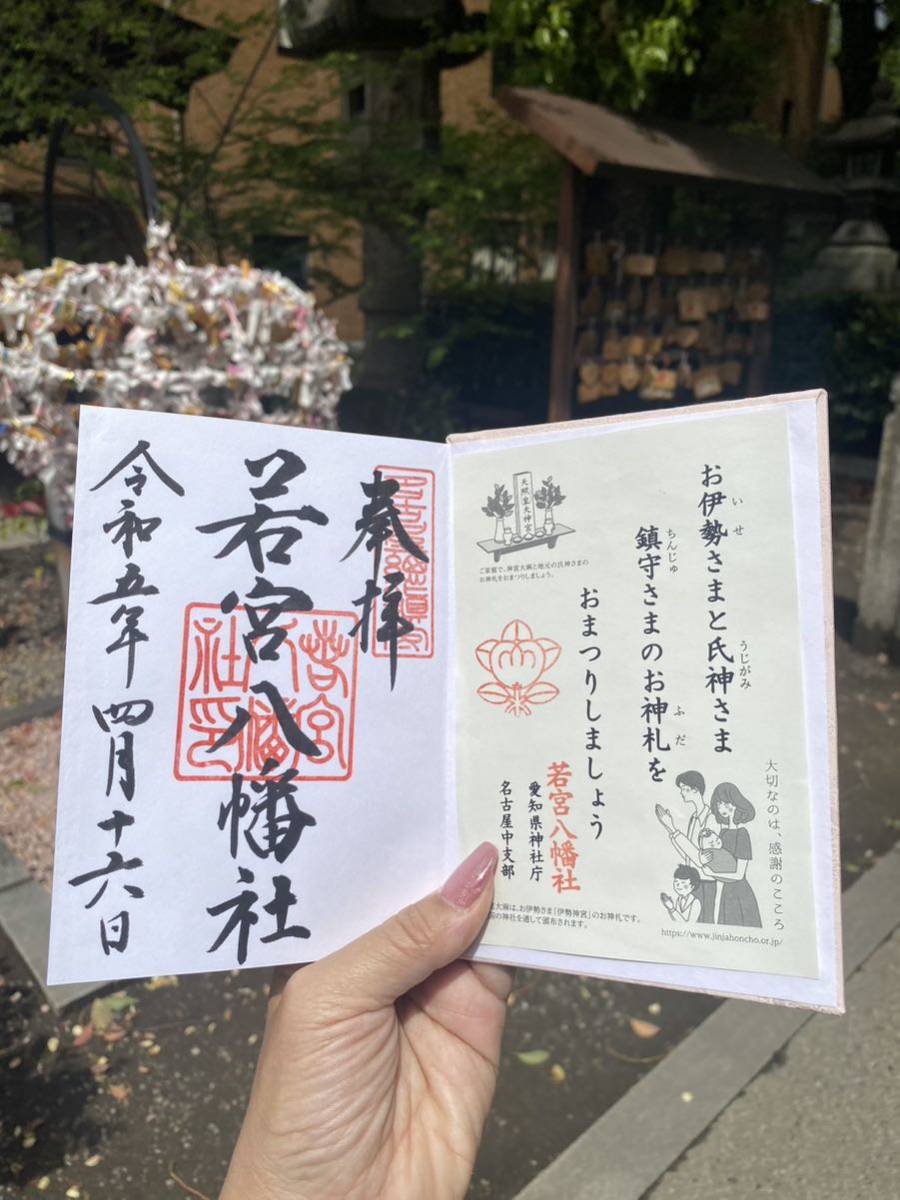 お伊勢さまと氏神さま
いせ
うじがみ
鎮守さまのお神札を
ちんじゅ
ふだ
おまつりしましょう
若宮八幡社
愛知県神社庁
名古屋中支部
天照皇大神宮
ご家庭で、神宮大麻と地元の氏神さまの
お神札をおまつりしましょう。
大切なのは、感謝のこころ
大麻は、お伊勢さま「伊勢神宮」のお神札です。
の神社を通して頒布されます。
https://www.jinjahoncho.or.jp/
奉拝
若宮八幡社
若宮八幡社印
令和五年四月十六日